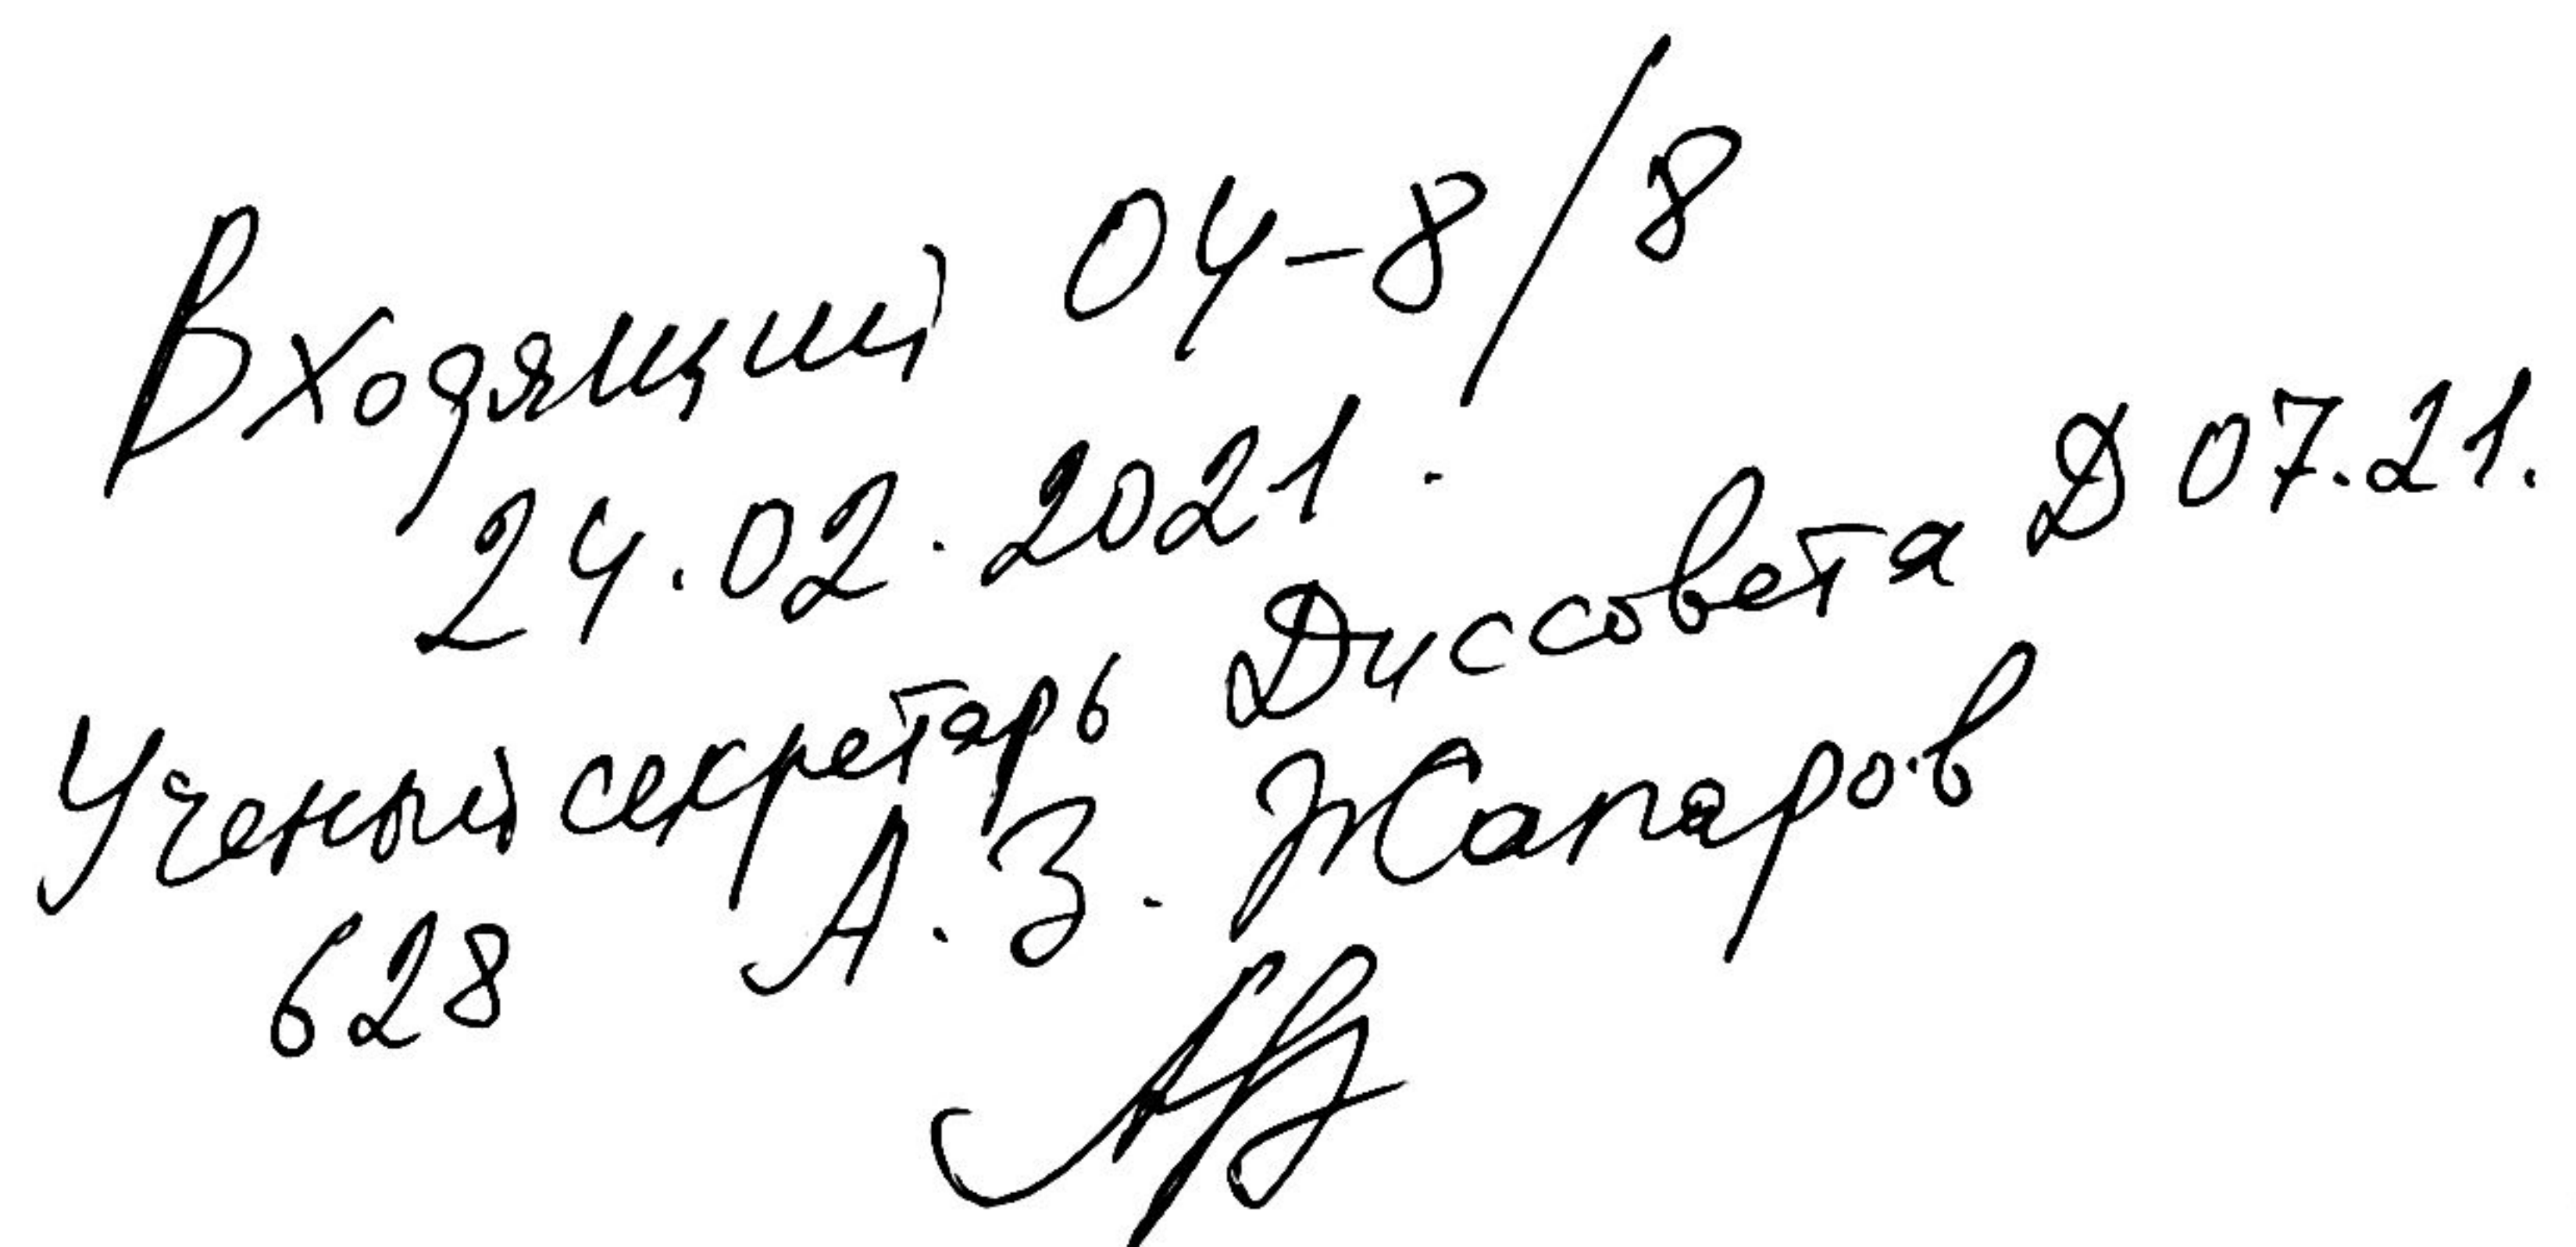 Входящий 04-8/8
24.02.2021.
Ученый секретарь Диссовета Д 07.21.
628 А.З. Жапаров